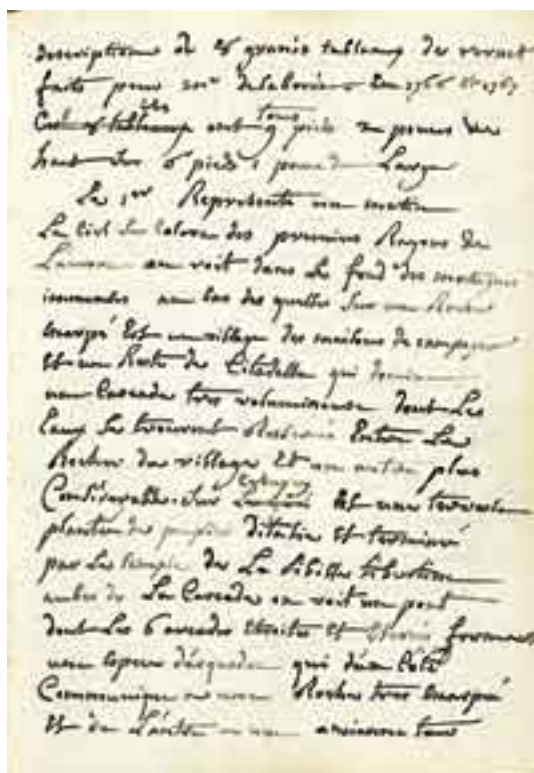 description de 8 grands tableaux de vernet
faits pour mr delaborde En 1766 et 1767
Ces 8 tableaux ont tous 9 pieds
haut sur 6 pieds 1 pouce de Large
Le 1er Represente un matin
Le Ciel Se Colore des premiers Rayons de
L'aurore on voit dans Le fond des montagnes
immenses au bas des quelles Sur un Rocher
Escarpé Est un village des maisons de campagne
Et un Reste de Citadelle qui domine
une Cascade tres volumineuse dont Les
Eaux Se trouvent Entre Le
Rocher du village Et un autre plus
Considerable Sur Lequel Est une terrasse
plantée de peupliers d'italie Et terminée
par Le temple de La Sibille tiburtine
au bas de La Cascade on voit un pont
dont Les 6 arcades Etroites Et Elevées forment
une Espece d'aqueduc qui d'un Coté
Communique a un Rocher tres Escarpé
Et de L'autre a une ancienne tour